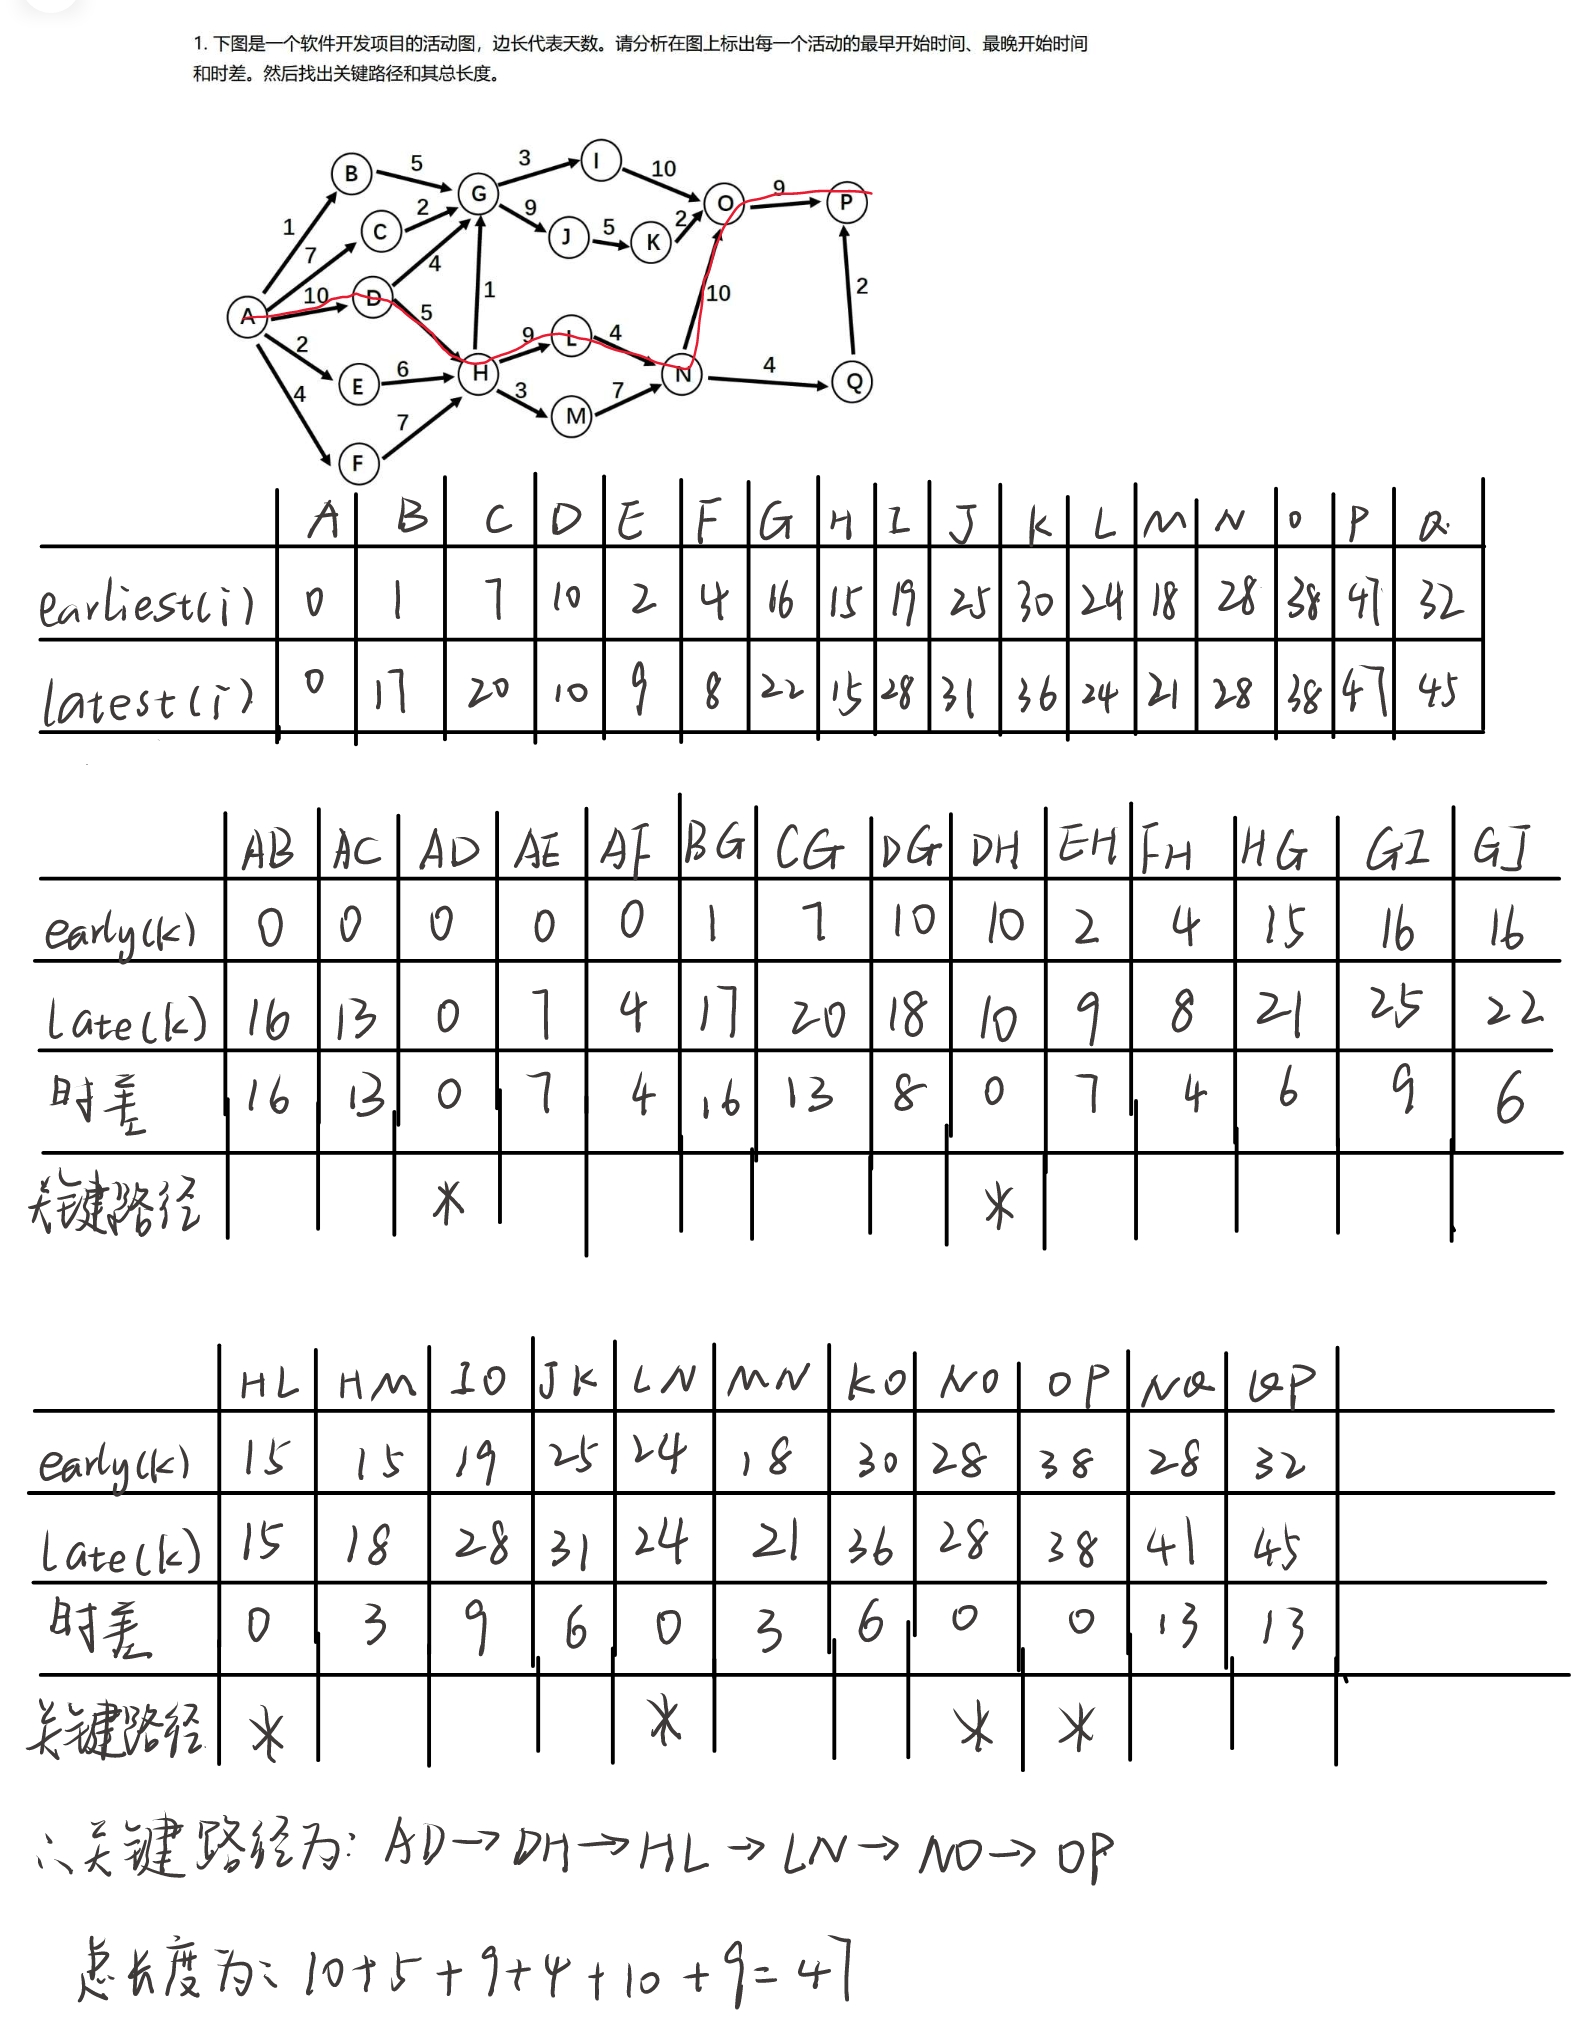 1. 下图是一个软件开发项目的活动图，边长代表天数。请分析在图上标出每一个活动的最早开始时间、最晚开始时间
和时差。然后找出关键路径和其总长度。
B 5 G 3 I 10 O 9 P
1 7 C 2 9 J 5 K 2
A 10 D 4 1 10 2
2 5 9 L 4
E 6 H N 4 Q
4 7 3 M 7
F
A B C D E F G H I J K L M N O P Q
earliest(i) 0 1 7 10 2 4 16 15 19 25 30 24 18 28 38 47 32
latest(i) 0 17 20 10 9 8 22 15 28 31 36 24 21 28 38 47 45
AB AC AD AE AF BG CG DG DH EH FH HG GI GJ
early(k) 0 0 0 0 0 1 7 10 10 2 4 15 16 16
late(k) 16 13 0 7 4 17 20 18 10 9 8 21 25 22
时差 16 13 0 7 4 16 13 8 0 7 4 6 9 6
关键路径 * *
HL HM IO JK LN MN KO NO OP NQ QP
early(k) 15 15 19 25 24 18 30 28 38 28 32
late(k) 15 18 28 31 24 21 36 28 38 41 45
时差 0 3 9 6 0 3 6 0 0 13 13
关键路径 * * * *
∴关键路径为: AD→DH→HL→LN→NO→OP
总长度为: 10+5+9+4+10+9=47